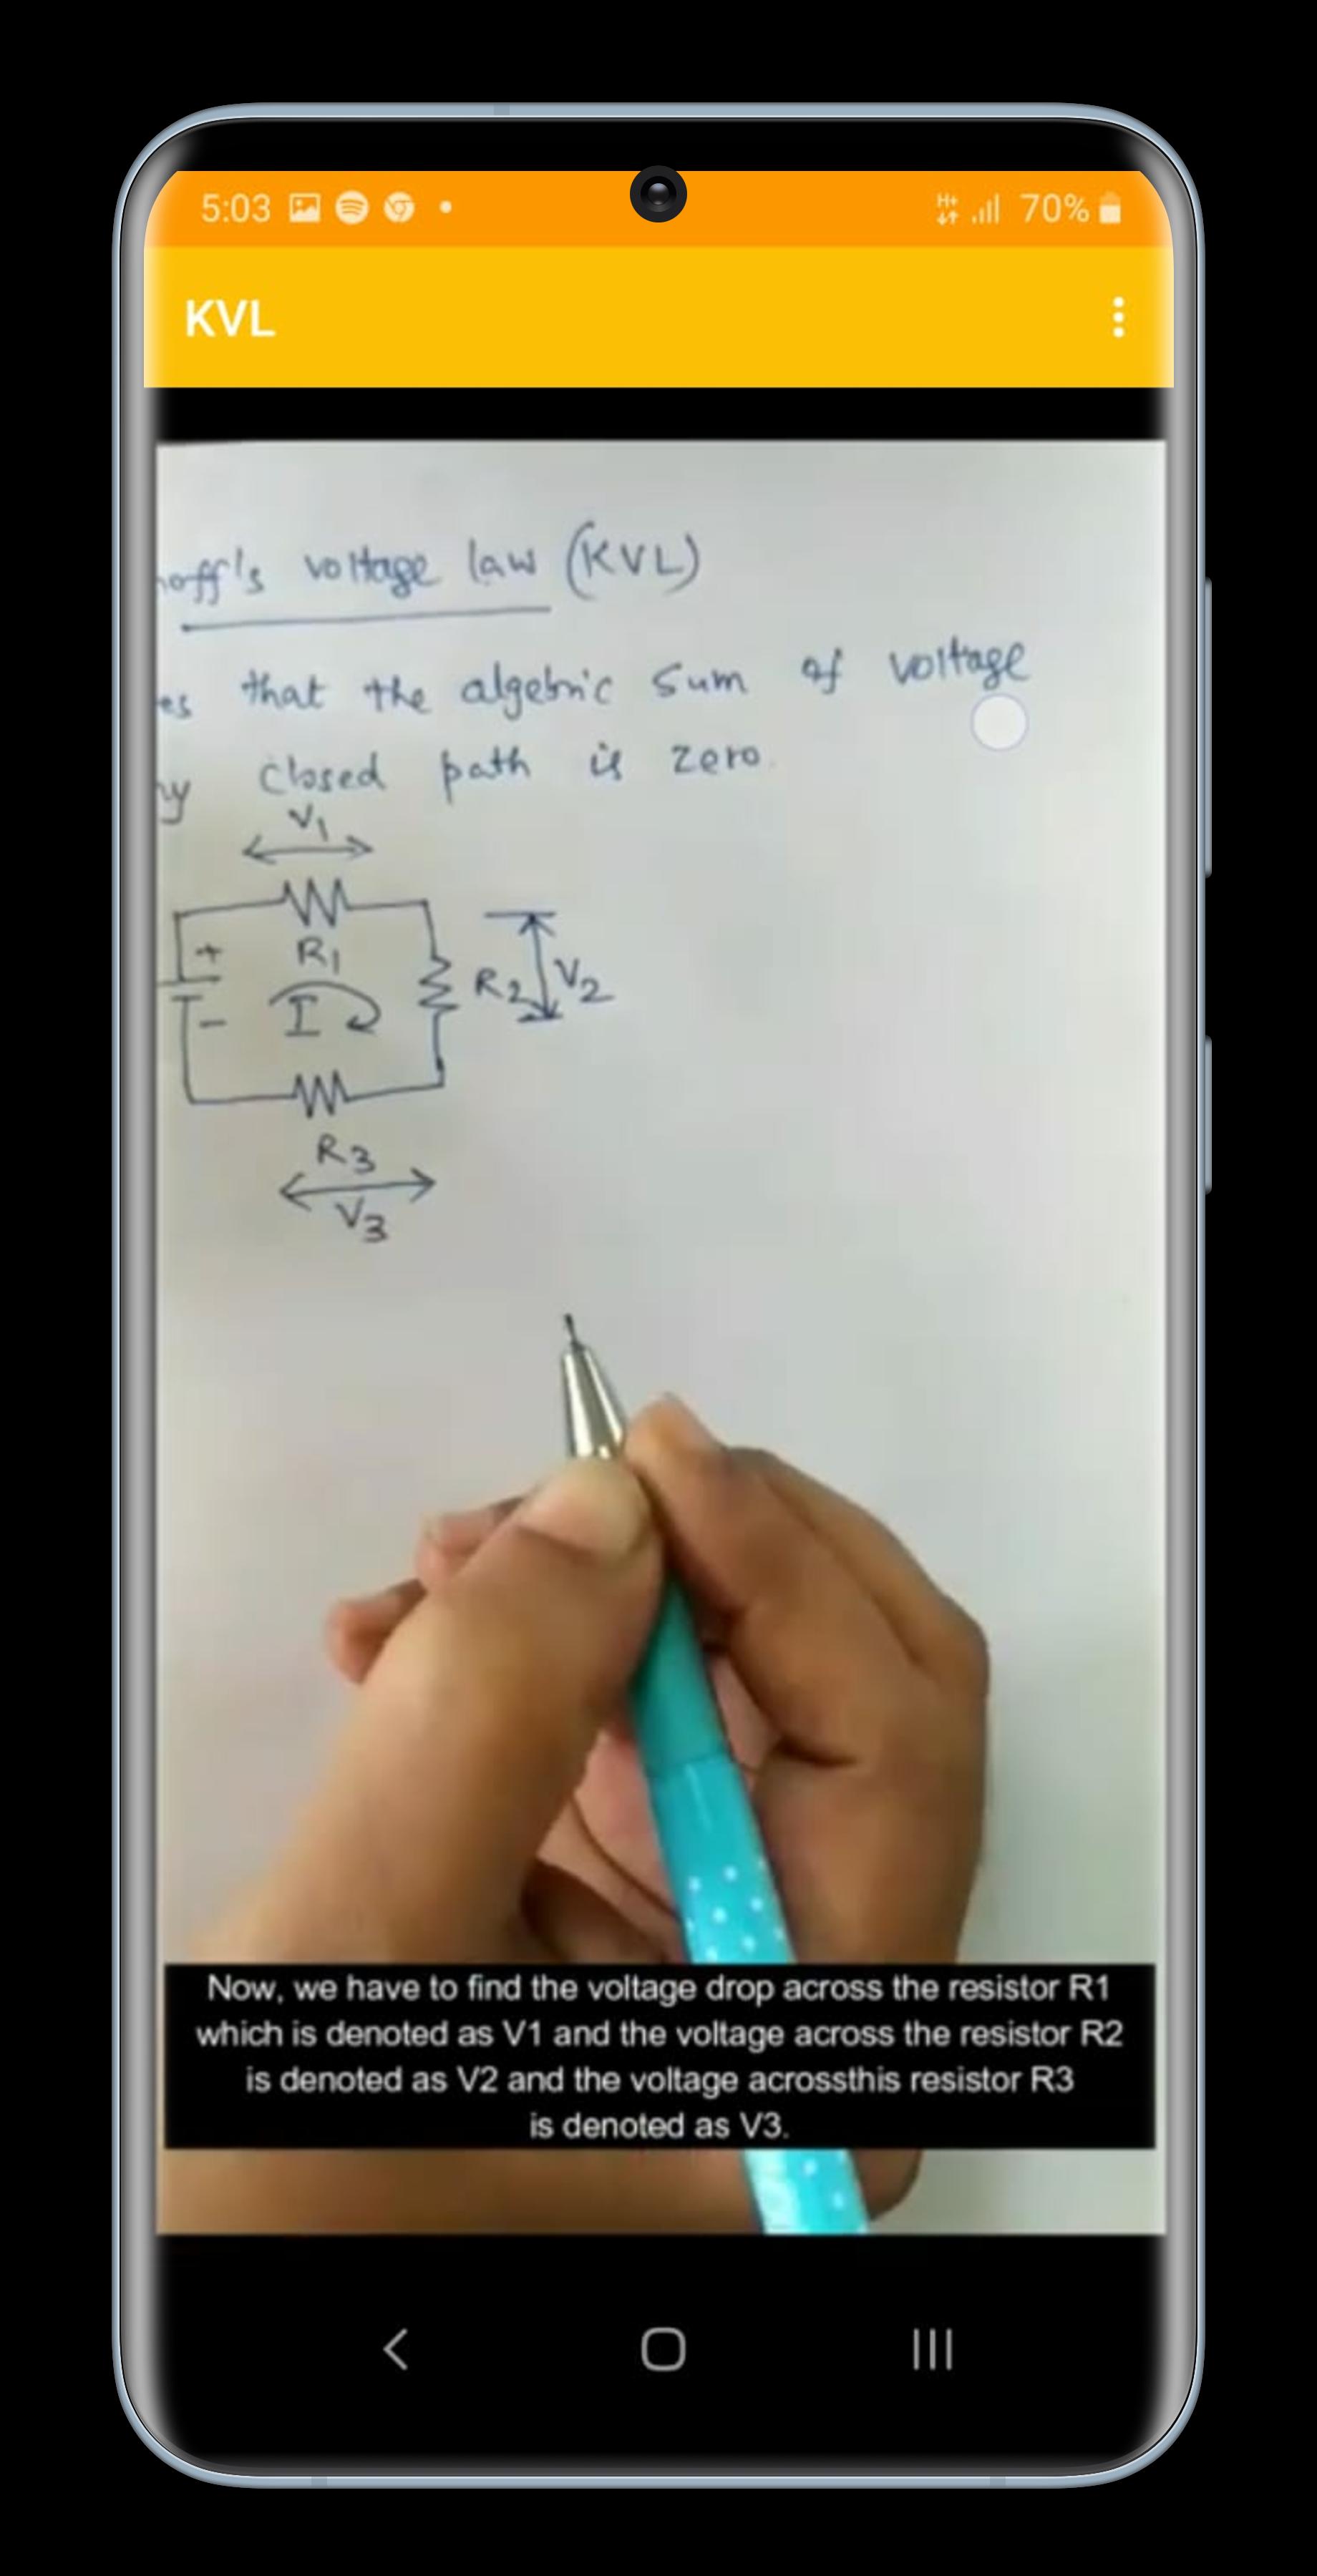 5:03 70%
KVL
hoff's voltage law (KVL)
es that the algebric sum of voltage
ny closed path is zero.
V1
+
R1
R2 V2
I
-
R3
V3
Now, we have to find the voltage drop across the resistor R1
which is denoted as V1 and the voltage across the resistor R2
is denoted as V2 and the voltage acrossthis resistor R3
is denoted as V3.